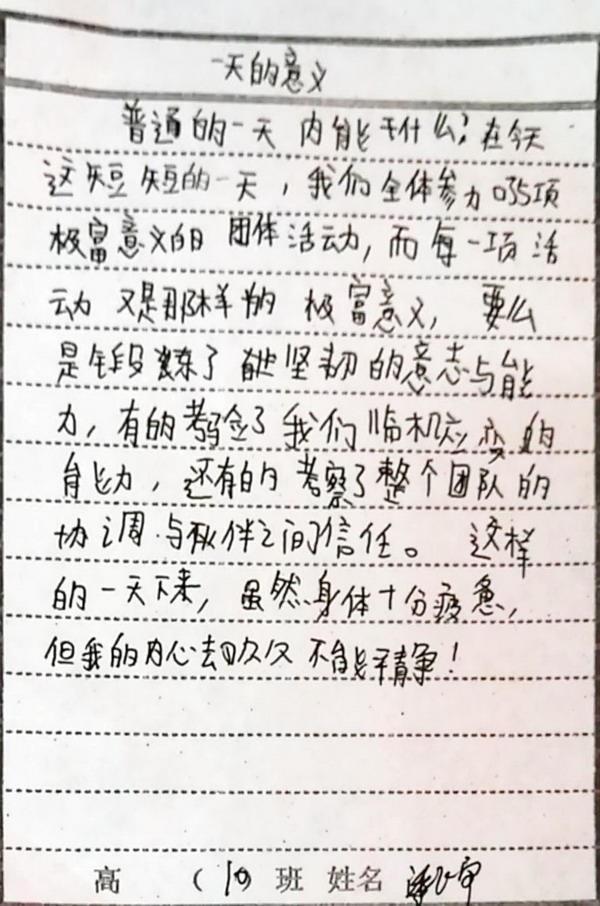 一天的意义
普通的一天内能干什么?在今天
这短短的一天,我们全体参加5项
极富意义的团体活动,而每一项活
动又是那样的极富意义,要么
是锻炼了自己坚韧的意志与能
力,有的考验了我们临机应变的
能力,还有的考察了整个团队的
协调与伙伴之间信任。这样
的一天下来,虽然身体十分疲惫,
但我的内心却久久不能平静!
高 (10) 班 姓名